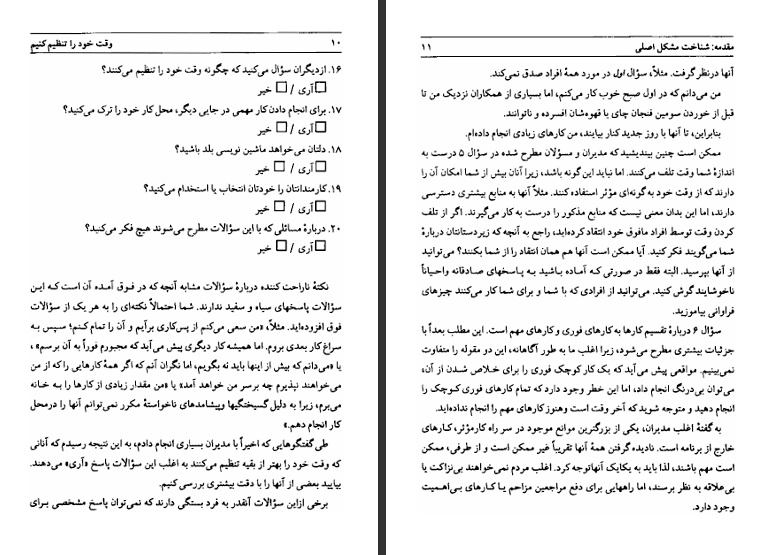 ۱۰ وقت خود را تنظیم کنیم
۱۶. از دیگران سؤال می‌کنید که چگونه وقت خود را تنظیم می‌کنند؟
□ آری / □ خیر
۱۷. برای انجام دادن کار مهمی در جایی دیگر، محل کار خود را ترک می‌کنید؟
□ آری / □ خیر
۱۸. دلتان می‌خواهد ماشین نویسی بلد باشید؟
□ آری / □ خیر
۱۹. کارمندانتان را خودتان انتخاب یا استخدام می‌کنید؟
□ آری / □ خیر
۲۰. دربارهٔ مسائلی که با این سؤالات مطرح می‌شوند هیچ فکر می‌کنید؟
□ آری / □ خیر
نکتهٔ ناراحت کننده دربارهٔ سؤالات مشابه آنچه که در فوق آمده آن است که این
سؤالات پاسخهای سیاه و سفید ندارند. شما احتمالاً نکته‌ای را به هر یک از سؤالات
فوق افزوده‌اید. مثلاً، «من سعی می‌کنم از پس کاری برآیم و آن را تمام کنم؛ سپس به
سراغ کار بعدی بروم. اما همیشه کار دیگری پیش می‌آید که مجبورم فوراً به آن برسم» ،
یا «می‌دانم که بیش از اینها باید نه بگویم، اما نگران آنم که اگر همهٔ کارهایی را که از من
می‌خواهند نپذیرم چه برسر من خواهد آمد» یا «من مقدار زیادی از کارها را به خانه
می‌برم، زیرا به دلیل گسیختگیها وپیشامدهای ناخواستهٔ مکرر نمی‌توانم آنها را درمحل
کار انجام دهم.»
طی گفتگوهایی که اخیراً با مدیران بسیاری انجام دادم، به این نتیجه رسیدم که آنانی
که وقت خود را بهتر از بقیه تنظیم می‌کنند به اغلب این سؤالات پاسخ «آری» می‌دهند.
بیایید بعضی از آنها را با دقت بیشتری بررسی کنیم.
برخی ازاین سؤالات آنقدر به فرد بستگی دارند که نمی‌توان پاسخ مشخصی برای
مقدمه: شناخت مشکل اصلی ۱۱
آنها درنظر گرفت. مثلاً، سؤال اول در مورد همهٔ افراد صدق نمی‌کند.
من می‌دانم که در اول صبح خوب کار می‌کنم، اما بسیاری از همکاران نزدیک من تا
قبل از خوردن سومین فنجان چای یا قهوه‌شان افسرده و ناتوانند.
بنابراین، تا آنها با روز جدید کنار بیایند، من کارهای زیادی انجام داده‌ام.
ممکن است چنین بیندیشید که مدیران و مسؤلان مطرح شده در سؤال ۵ درست به
اندازهٔ شما وقت تلف می‌کنند. اما نباید این گونه باشد، زیرا آنان بیش از شما امکان آن را
دارند که از وقت خود به گونه‌ای مؤثر استفاده کنند. مثلاً آنها به منابع بیشتری دسترسی
دارند، اما این بدان معنی نیست که منابع مذکور را درست به کار می‌گیرند. اگر از تلف
کردن وقت توسط افراد مافوق خود انتقاد کرده‌اید، راجع به آنچه که زیردستانتان دربارهٔ
شما می‌گویند فکر کنید. آیا ممکن است آنها هم همان انتقاد را از شما بکنند؟ می‌توانید
از آنها بپرسید. البته فقط در صورتی که آماده باشید به پاسخهای صادقانه واحیاناً
ناخوشایند گوش کنید. می‌توانید از افرادی که با شما و برای شما کار می‌کنند چیزهای
فراوانی بیاموزید.
سؤال ۶ دربارهٔ تقسیم کارها به کارهای فوری و کارهای مهم است. این مطلب بعداً با
جزئیات بیشتری مطرح می‌شود، زیرا اغلب ما به طور آگاهانه، این دو مقوله را متفاوت
نمی‌بینیم. مواقعی پیش می‌آید که یک کار کوچک فوری را برای خلاص شدن از آن،
می‌توان بی‌درنگ انجام داد، اما این خطر وجود دارد که تمام کارهای فوری کوچک را
انجام دهید و متوجه شوید که آخر وقت است وهنوز کارهای مهم را انجام نداده‌اید.
به گفتهٔ اغلب مدیران، یکی از بزرگترین موانع موجود در سر راه کارمؤثر، کارهای
خارج از برنامه است. نادیده گرفتن همهٔ آنها تقریباً غیر ممکن است و از طرفی، ممکن
است مهم باشند، لذا باید به یکایک آنهاتوجه کرد. اغلب مردم نمی‌خواهند بی‌نزاکت یا
بی‌علاقه به نظر برسند، اما راههایی برای دفع مراجعین مزاحم یا کارهای بی‌اهمیت
وجود دارد.